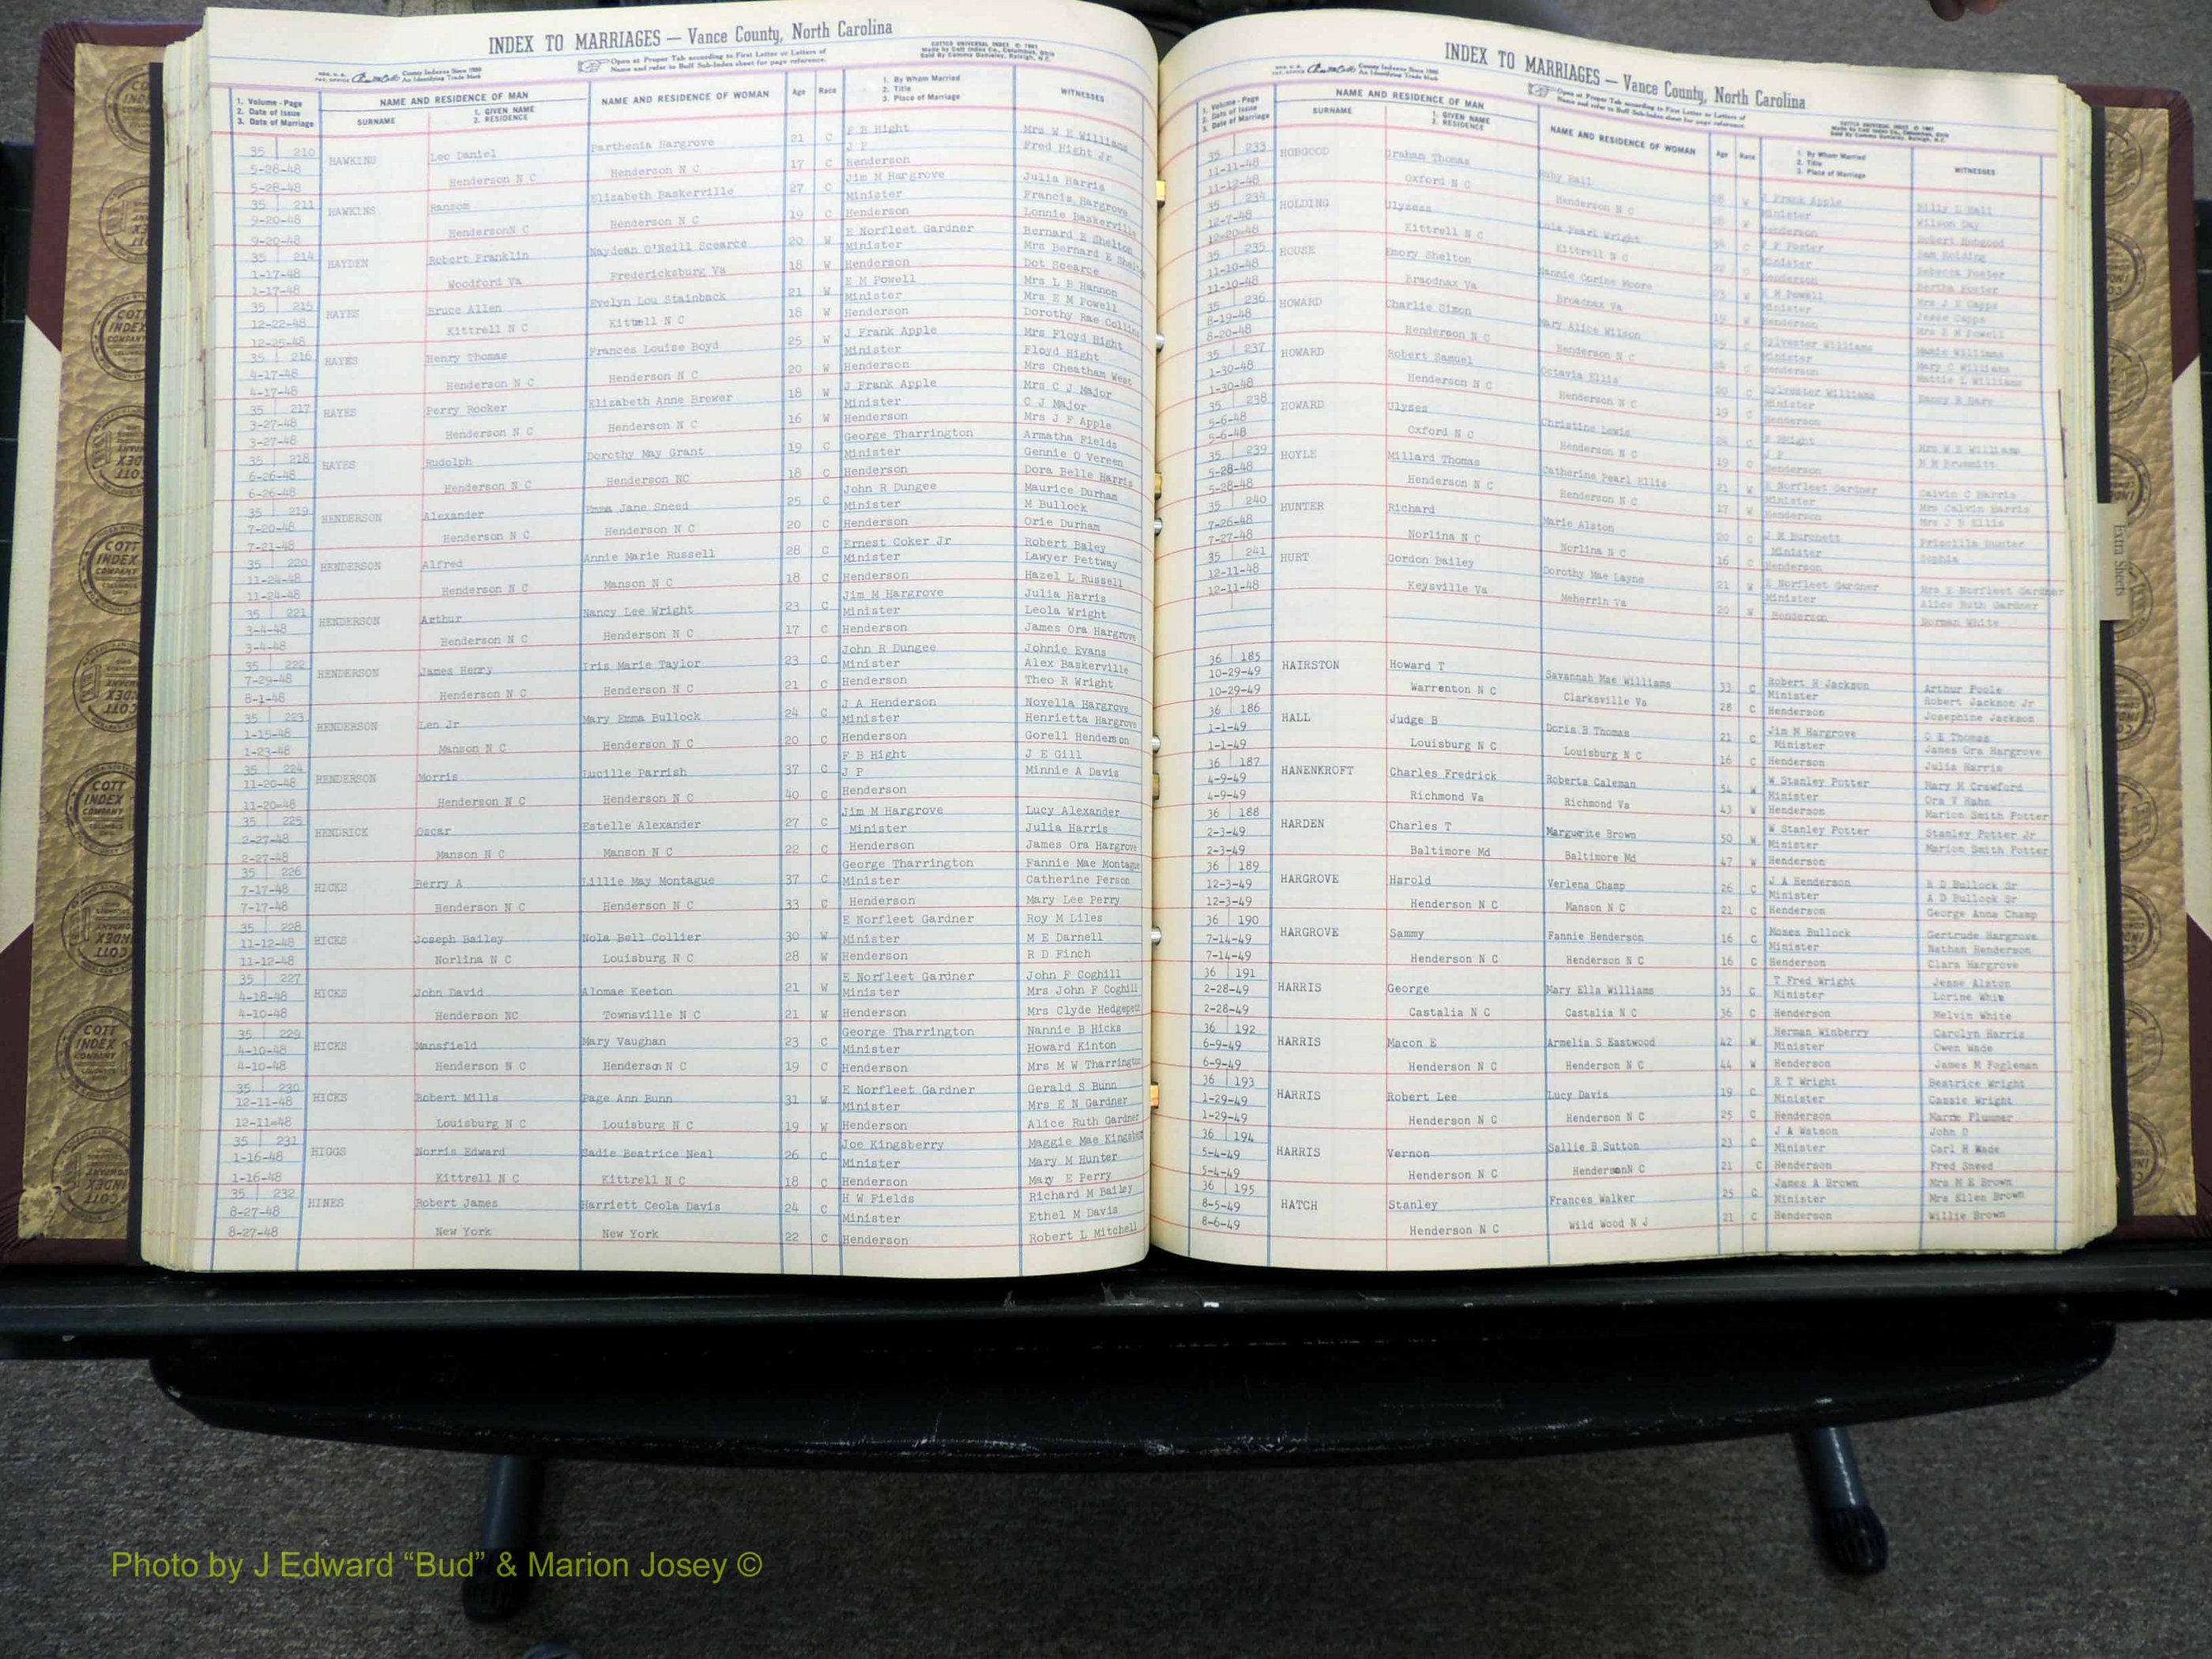 INDEX TO MARRIAGES — Vance County, North Carolina
Open at Proper Tab according to First Letter or Letters of
Name and refer to Buff Sub-Index sheet for page reference.
1. Volume - Page
2. Date of Issue
3. Date of Marriage
NAME AND RESIDENCE OF MAN
SURNAME
1. GIVEN NAME
2. RESIDENCE
NAME AND RESIDENCE OF WOMAN
Age
Race
1. By Whom Married
2. Title
3. Place of Marriage
WITNESSES
35 210 HAWKINS Leo Daniel Parthenia Hargrove 21 C F B Hight Mrs W E Williams
5-26-48 J P Fred Hight Jr
5-28-48 Henderson N C Henderson N C 17 C Henderson
35 211 HAWKINS Ransom Elizabeth Baskerville 27 C Jim M Hargrove Julia Harris
9-20-48 Minister Francis Hargrove
9-20-48 HendersonN C Henderson N C 19 C Henderson Lonnie Baskerville
35 214 HAYDEN Robert Franklin Naydean O'Neill Scearce 20 W E Norfleet Gardner Bernard E Shelton
1-17-48 Minister Mrs Bernard E Shelton
1-17-48 Woodford Va Fredericksburg Va 18 W Henderson Dot Scearce
35 215 HAYES Bruce Allen Evelyn Lou Stainback 21 W E M Powell Mrs L B Hannon
12-22-48 Minister Mrs E M Powell
12-25-48 Kittrell N C Kittrell N C 18 W Henderson Dorothy Rae Collins
35 216 HAYES Henry Thomas Frances Louise Boyd 25 W J Frank Apple Mrs Floyd Hight
4-17-48 Minister Floyd Hight
4-17-48 Henderson N C Henderson N C 20 W Henderson Mrs Cheatham West
35 217 HAYES Perry Rooker Elizabeth Anne Brewer 18 W J Frank Apple Mrs C J Major
3-27-48 Minister C J Major
3-27-48 Henderson N C Henderson N C 16 W Henderson Mrs J F Apple
35 218 HAYES Rudolph Dorothy May Grant 19 C George Tharrington Armatha Fields
6-26-48 Minister Gennie O Vereen
6-26-48 Henderson N C Henderson NC 18 C Henderson Dora Belle Harris
35 219 HENDERSON Alexander Emma Jane Sneed 25 C John R Dungee Maurice Durham
7-20-48 Minister M Bullock
7-21-48 Henderson N C Henderson N C 20 C Henderson Orie Durham
35 220 HENDERSON Alfred Annie Marie Russell 28 C Ernest Coker Jr Robert Baley
11-24-48 Minister Lawyer Pettway
11-24-48 Henderson N C Manson N C 18 C Henderson Hazel L Russell
35 221 HENDERSON Arthur Nancy Lee Wright 23 C Jim M Hargrove Julia Harris
3-4-48 Minister Leola Wright
3-4-48 Henderson N C Henderson N C 17 C Henderson James Ora Hargrove
35 222 HENDERSON James Henry Iris Marie Taylor 23 C John R Dungee Johnie Evans
7-29-48 Minister Alex Baskerville
8-1-48 Henderson N C Henderson N C 21 C Henderson Theo R Wright
35 223 HENDERSON Len Jr Mary Emma Bullock 24 C J A Henderson Novella Hargrove
1-15-48 Minister Henrietta Hargrove
1-23-48 Manson N C Henderson N C 20 C Henderson Gorell Henderson
35 224 HENDERSON Morris Lucille Parrish 37 C F B Hight J E Gill
11-20-48 J P Minnie A Davis
11-20-48 Henderson N C Henderson N C 40 C Henderson
35 225 HENDRICK Oscar Estelle Alexander 27 C Jim M Hargrove Lucy Alexander
2-27-48 Minister Julia Harris
2-27-48 Manson N C Manson N C 22 C Henderson James Ora Hargrove
35 226 HICKS Berry A Lillie May Montague 37 C George Tharrington Fannie Mae Montague
7-17-48 Minister Catherine Person
7-17-48 Henderson N C Henderson N C 33 C Henderson Mary Lee Perry
35 228 HICKS Joseph Bailey Nola Bell Collier 30 W E Norfleet Gardner Roy M Liles
11-12-48 Minister M E Darnell
11-12-48 Norlina N C Louisburg N C 28 W Henderson R D Finch
35 227 HICKS John David Alomae Keeton 21 W E Norfleet Gardner John F Coghill
4-18-48 Minister Mrs John F Coghill
4-10-48 Henderson NC Townsville N C 21 W Henderson Mrs Clyde Hedgepeth
35 229 HICKS Mansfield Mary Vaughan 23 C George Tharrington Nannie B Hicks
4-10-48 Minister Howard Kinton
4-10-48 Henderson N C Henderson N C 19 C Henderson Mrs M W Tharrington
35 230 HICKS Robert Mills Page Ann Bunn 31 W E Norfleet Gardner Gerald S Bunn
12-11-48 Minister Mrs E N Gardner
12-11-48 Louisburg N C Louisburg N C 19 W Henderson Alice Ruth Gardner
35 231 HIGGS Norris Edward Sadie Beatrice Neal 26 C Joe Kingsberry Maggie Mae Kingsber
1-16-48 Minister Mary M Hunter
1-16-48 Kittrell N C Kittrell N C 18 C Henderson Mary E Perry
35 232 HINES Robert James Harriett Ceola Davis 24 C H W Fields Richard M Bailey
8-27-48 Minister Ethel M Davis
8-27-48 New York New York 22 C Henderson Robert L Mitchell
INDEX TO MARRIAGES — Vance County, North Carolina
Open at Proper Tab according to First Letter or Letters of
Name and refer to Buff Sub-Index sheet for page reference.
1. Volume - Page
2. Date of Issue
3. Date of Marriage
NAME AND RESIDENCE OF MAN
SURNAME
1. GIVEN NAME
2. RESIDENCE
NAME AND RESIDENCE OF WOMAN
Age
Race
1. By Whom Married
2. Title
3. Place of Marriage
WITNESSES
35 233 HOBGOOD Graham Thomas Ruby Hall 28 W J Frank Apple Billy L Hall
11-11-48 Minister Wilson Day
11-12-48 Oxford N C Henderson N C 28 W Henderson Robert Hobgood
35 234 HOLDING Ulysess Lula Pearl Wright 34 C F F Foster Sam Holding
12-7-48 Minister Rebecca Foster
12-20-48 Kittrell N C Kittrell N C C Henderson Bertha Foster
35 235 HOUSE Emory Shelton Nannie Corine Moore 23 W E M Powell Mrs J E Capps
11-10-48 Minister Jesse Capps
11-10-48 Braodnax Va Broadnax Va 19 W Henderson Mrs E M Powell
35 236 HOWARD Charlie Simon Mary Alice Wilson 29 C Sylvester Williams Mamie Williams
8-19-48 Minister Mary C Williams
8-20-48 Henderson N C Henderson N C 24 C Henderson Mattie L Williams
35 237 HOWARD Robert Samuel Octavia Ellis 20 C Sylvester Williams
1-30-48 Minister
1-30-48 Henderson N C Henderson N C 19 C Henderson
35 238 HOWARD Ulyses Christine Lewis 24 C F Hight Mrs W E Williams
5-6-48 J P
5-6-48 Oxford N C Henderson N C 19 C Henderson
35 239 HOYLE Millard Thomas Catherine Pearl Ellis 21 W E Norfleet Gardner Calvin C Harris
5-28-48 Minister Mrs Calvin Harris
5-28-48 Henderson N C Henderson N C 17 W Henderson Mrs J B Ellis
35 240 HUNTER Richard Marie Alston 20 C J H Burchett Priscilla Hunter
7-26-48 Minister Sophia
7-27-48 Norlina N C Norlina N C 16 C Henderson
35 241 HURT Gordon Bailey Dorothy Mae Layne 21 W E Norfleet Gardner Mrs E Norfleet Gardner
12-11-48 Minister Alice Ruth Gardner
12-11-48 Keysville Va Meherrin Va 20 W Henderson Norman White
36 185 HAIRSTON Howard T Savannah Mae Williams 33 C Robert H Jackson Arthur Poole
10-29-49 Minister Robert Jackson Jr
10-29-49 Warrenton N C Clarksville Va 28 C Henderson Josephine Jackson
36 186 HALL Judge B Doris B Thomas 21 C Jim M Hargrove C E Thomas
1-1-49 Minister James Ora Hargrove
1-1-49 Louisburg N C Louisburg N C 16 C Henderson Julia Harris
36 187 HANENKROFT Charles Fredrick Roberta Caleman 54 W W Stanley Potter Mary H Crawford
4-9-49 Minister Ora V Hahn
4-9-49 Richmond Va Richmond Va 43 W Henderson Marion Smith Potter
36 188 HARDEN Charles T Marguerite Brown 50 W W Stanley Potter Stanley Potter Jr
2-3-49 Minister Marion Smith Potter
2-3-49 Baltimore Md Baltimore Md 47 W Henderson
36 189 HARGROVE Harold Verlena Champ 26 C J A Henderson R D Bullock Sr
12-3-49 Minister A D Bullock Sr
12-3-49 Henderson N C Manson N C 21 C Henderson George Anna Champ
36 190 HARGROVE Sammy Fannie Henderson 16 C Moses Bullock Gertrude Hargrove
7-14-49 Minister Nathan Henderson
7-14-49 Henderson N C Henderson N C 16 C Henderson Clara Hargrove
36 191 HARRIS George Mary Ella Williams 35 C T Fred Wright Jesse Alston
2-28-49 Minister Lorine Whit
2-28-49 Castalia N C Castalia N C 36 C Henderson Melvin White
36 192 HARRIS Macon E Armelia S Eastwood 42 W Herman Winberry Carolyn Harris
6-9-49 Minister Owen Wade
6-9-49 Henderson N C Henderson N C 44 W Henderson James M Fogleman
36 193 HARRIS Robert Lee Lucy Davis 19 C R T Wright Beatrice Wright
1-29-49 Minister Cassie Wright
1-29-49 Henderson N C Henderson N C 25 C Henderson Plummer
36 194 HARRIS Vernon Sallie B Sutton 23 C J A Watson John D
5-4-49 Minister Carl H Wade
5-4-49 Henderson N C HendersonN C 21 C Henderson Fred Sneed
36 195 HATCH Stanley Frances Walker 25 C James A Brown Mrs M E Brown
8-5-49 Minister Mrs Ellen Brown
8-6-49 Henderson N C Wild Wood N J 21 C Henderson Willie Brown
Extra Sheets
COTT INDEX COMPANY
Photo by J Edward “Bud” & Marion Josey ©